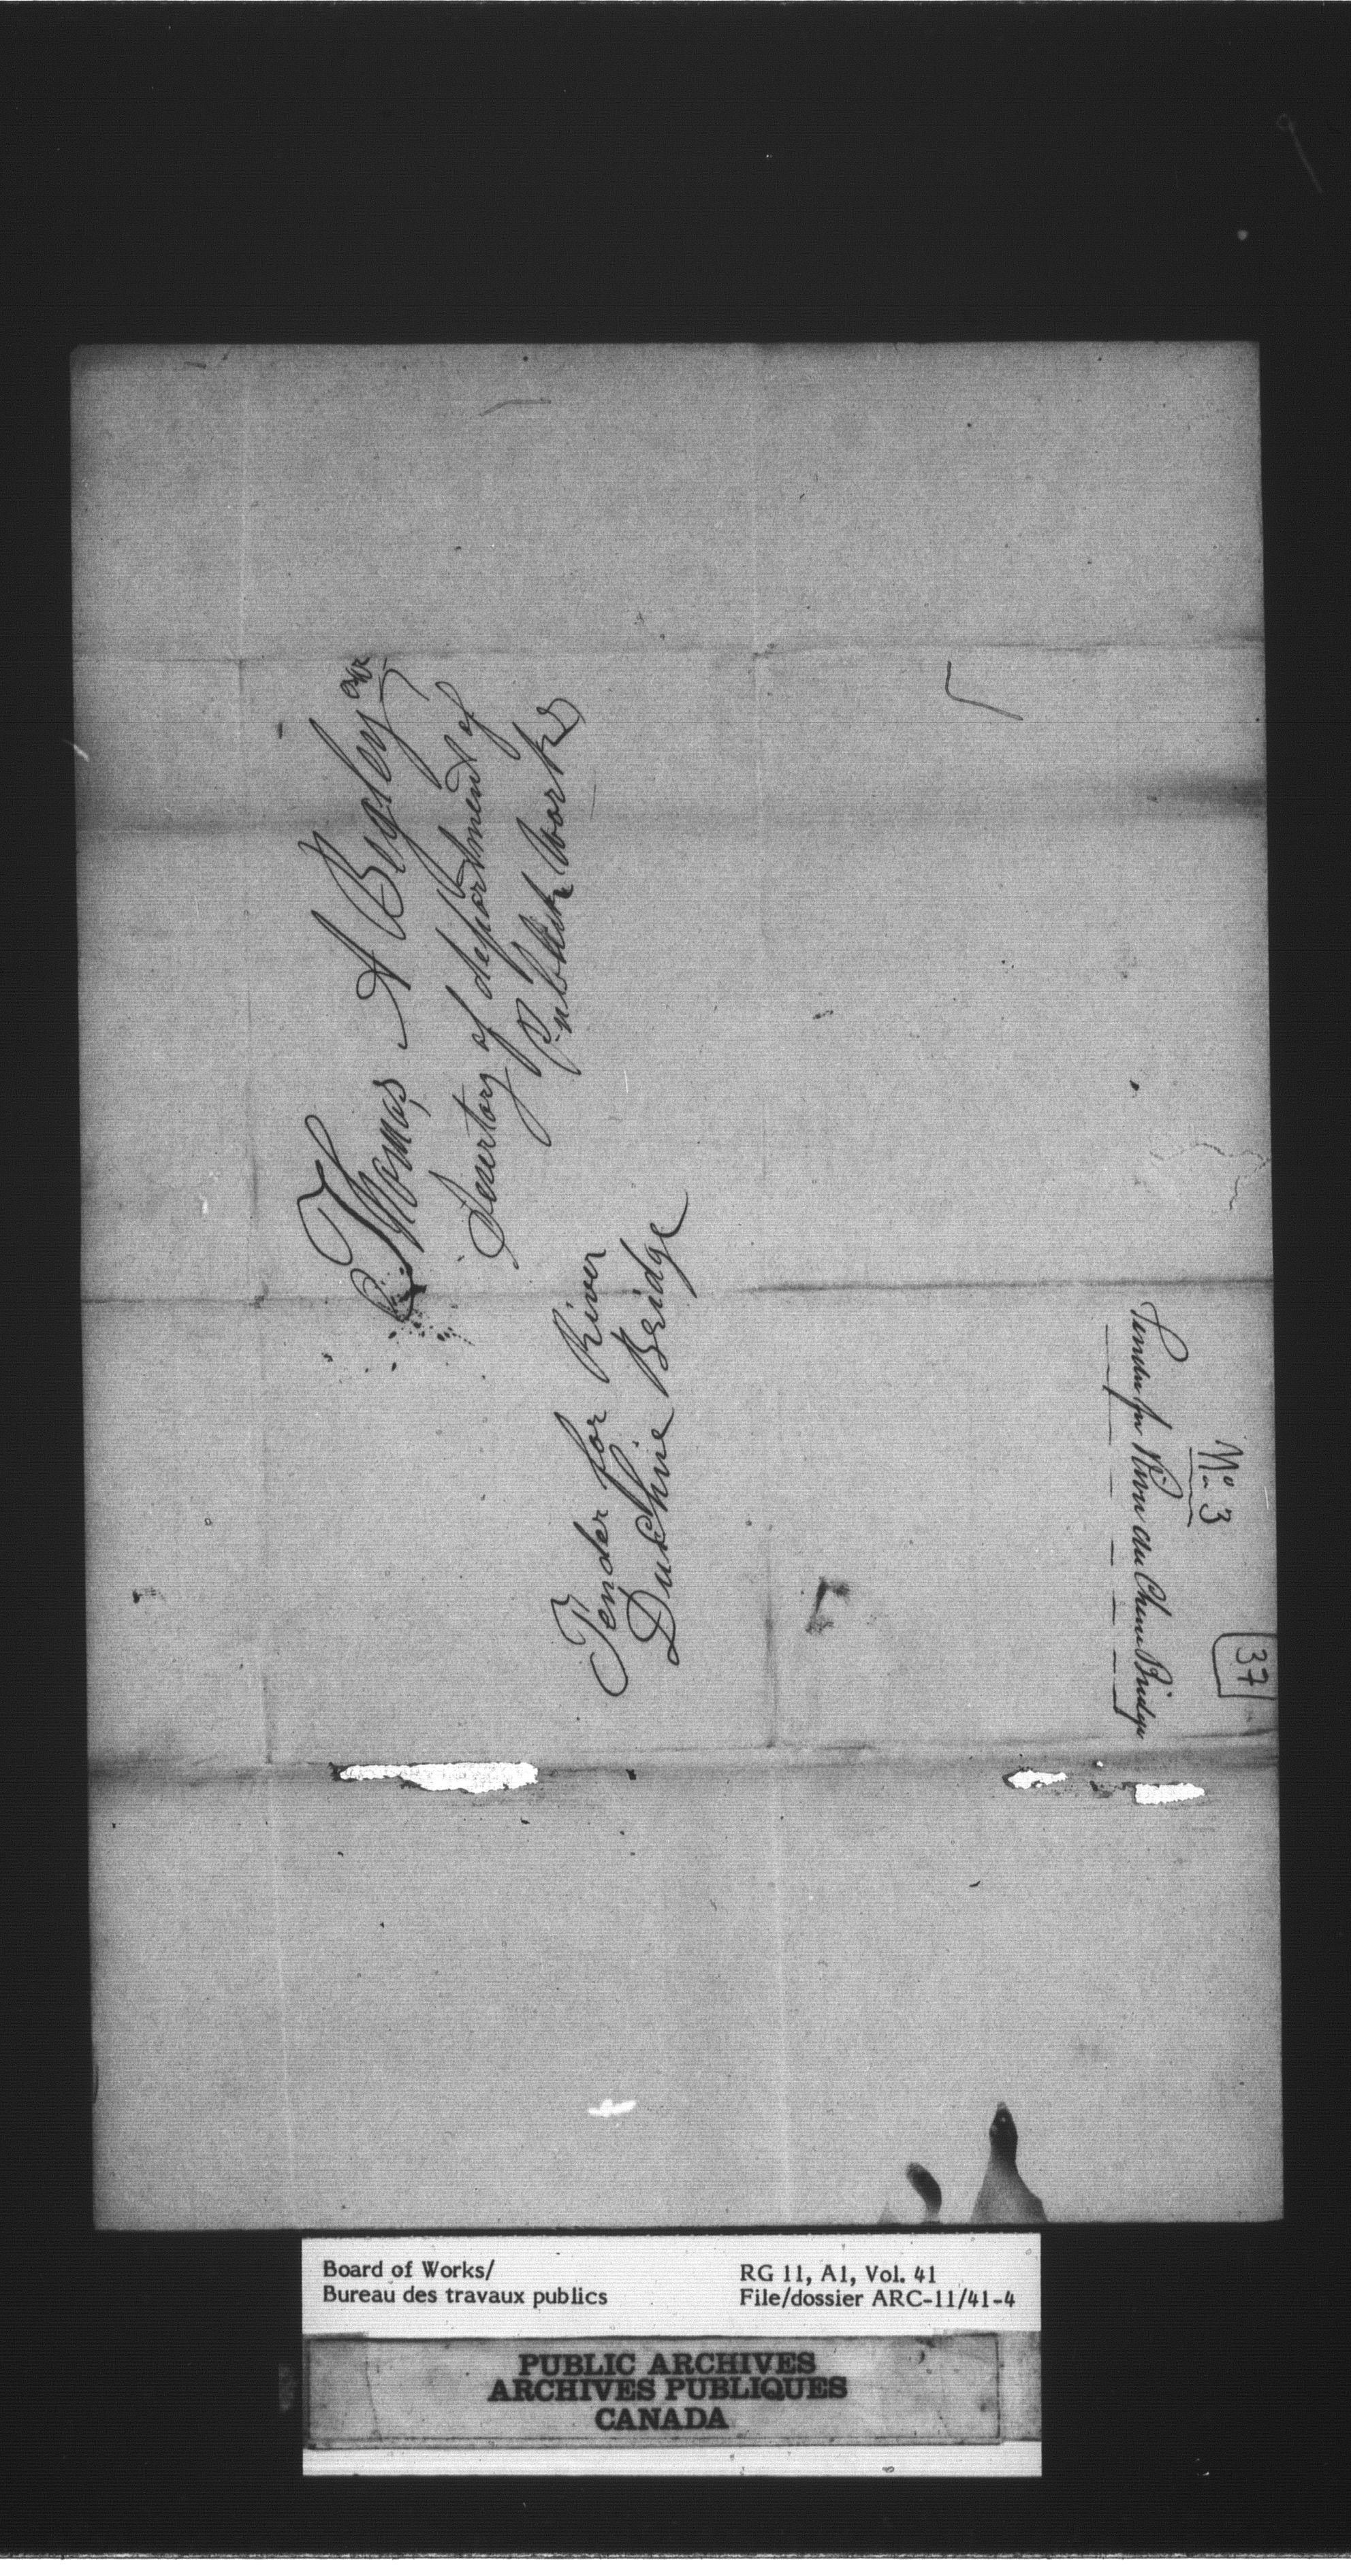 Thomas A Begley
Secertary of department of
Publick Works
Tender for River
Duchine Bridge
No 3
Tender for River du Chene Bridge
37
Board of Works/
Bureau des travaux publics
RG 11, A1, Vol. 41
File/dossier ARC-11/41-4
PUBLIC ARCHIVES
ARCHIVES PUBLIQUES
CANADA